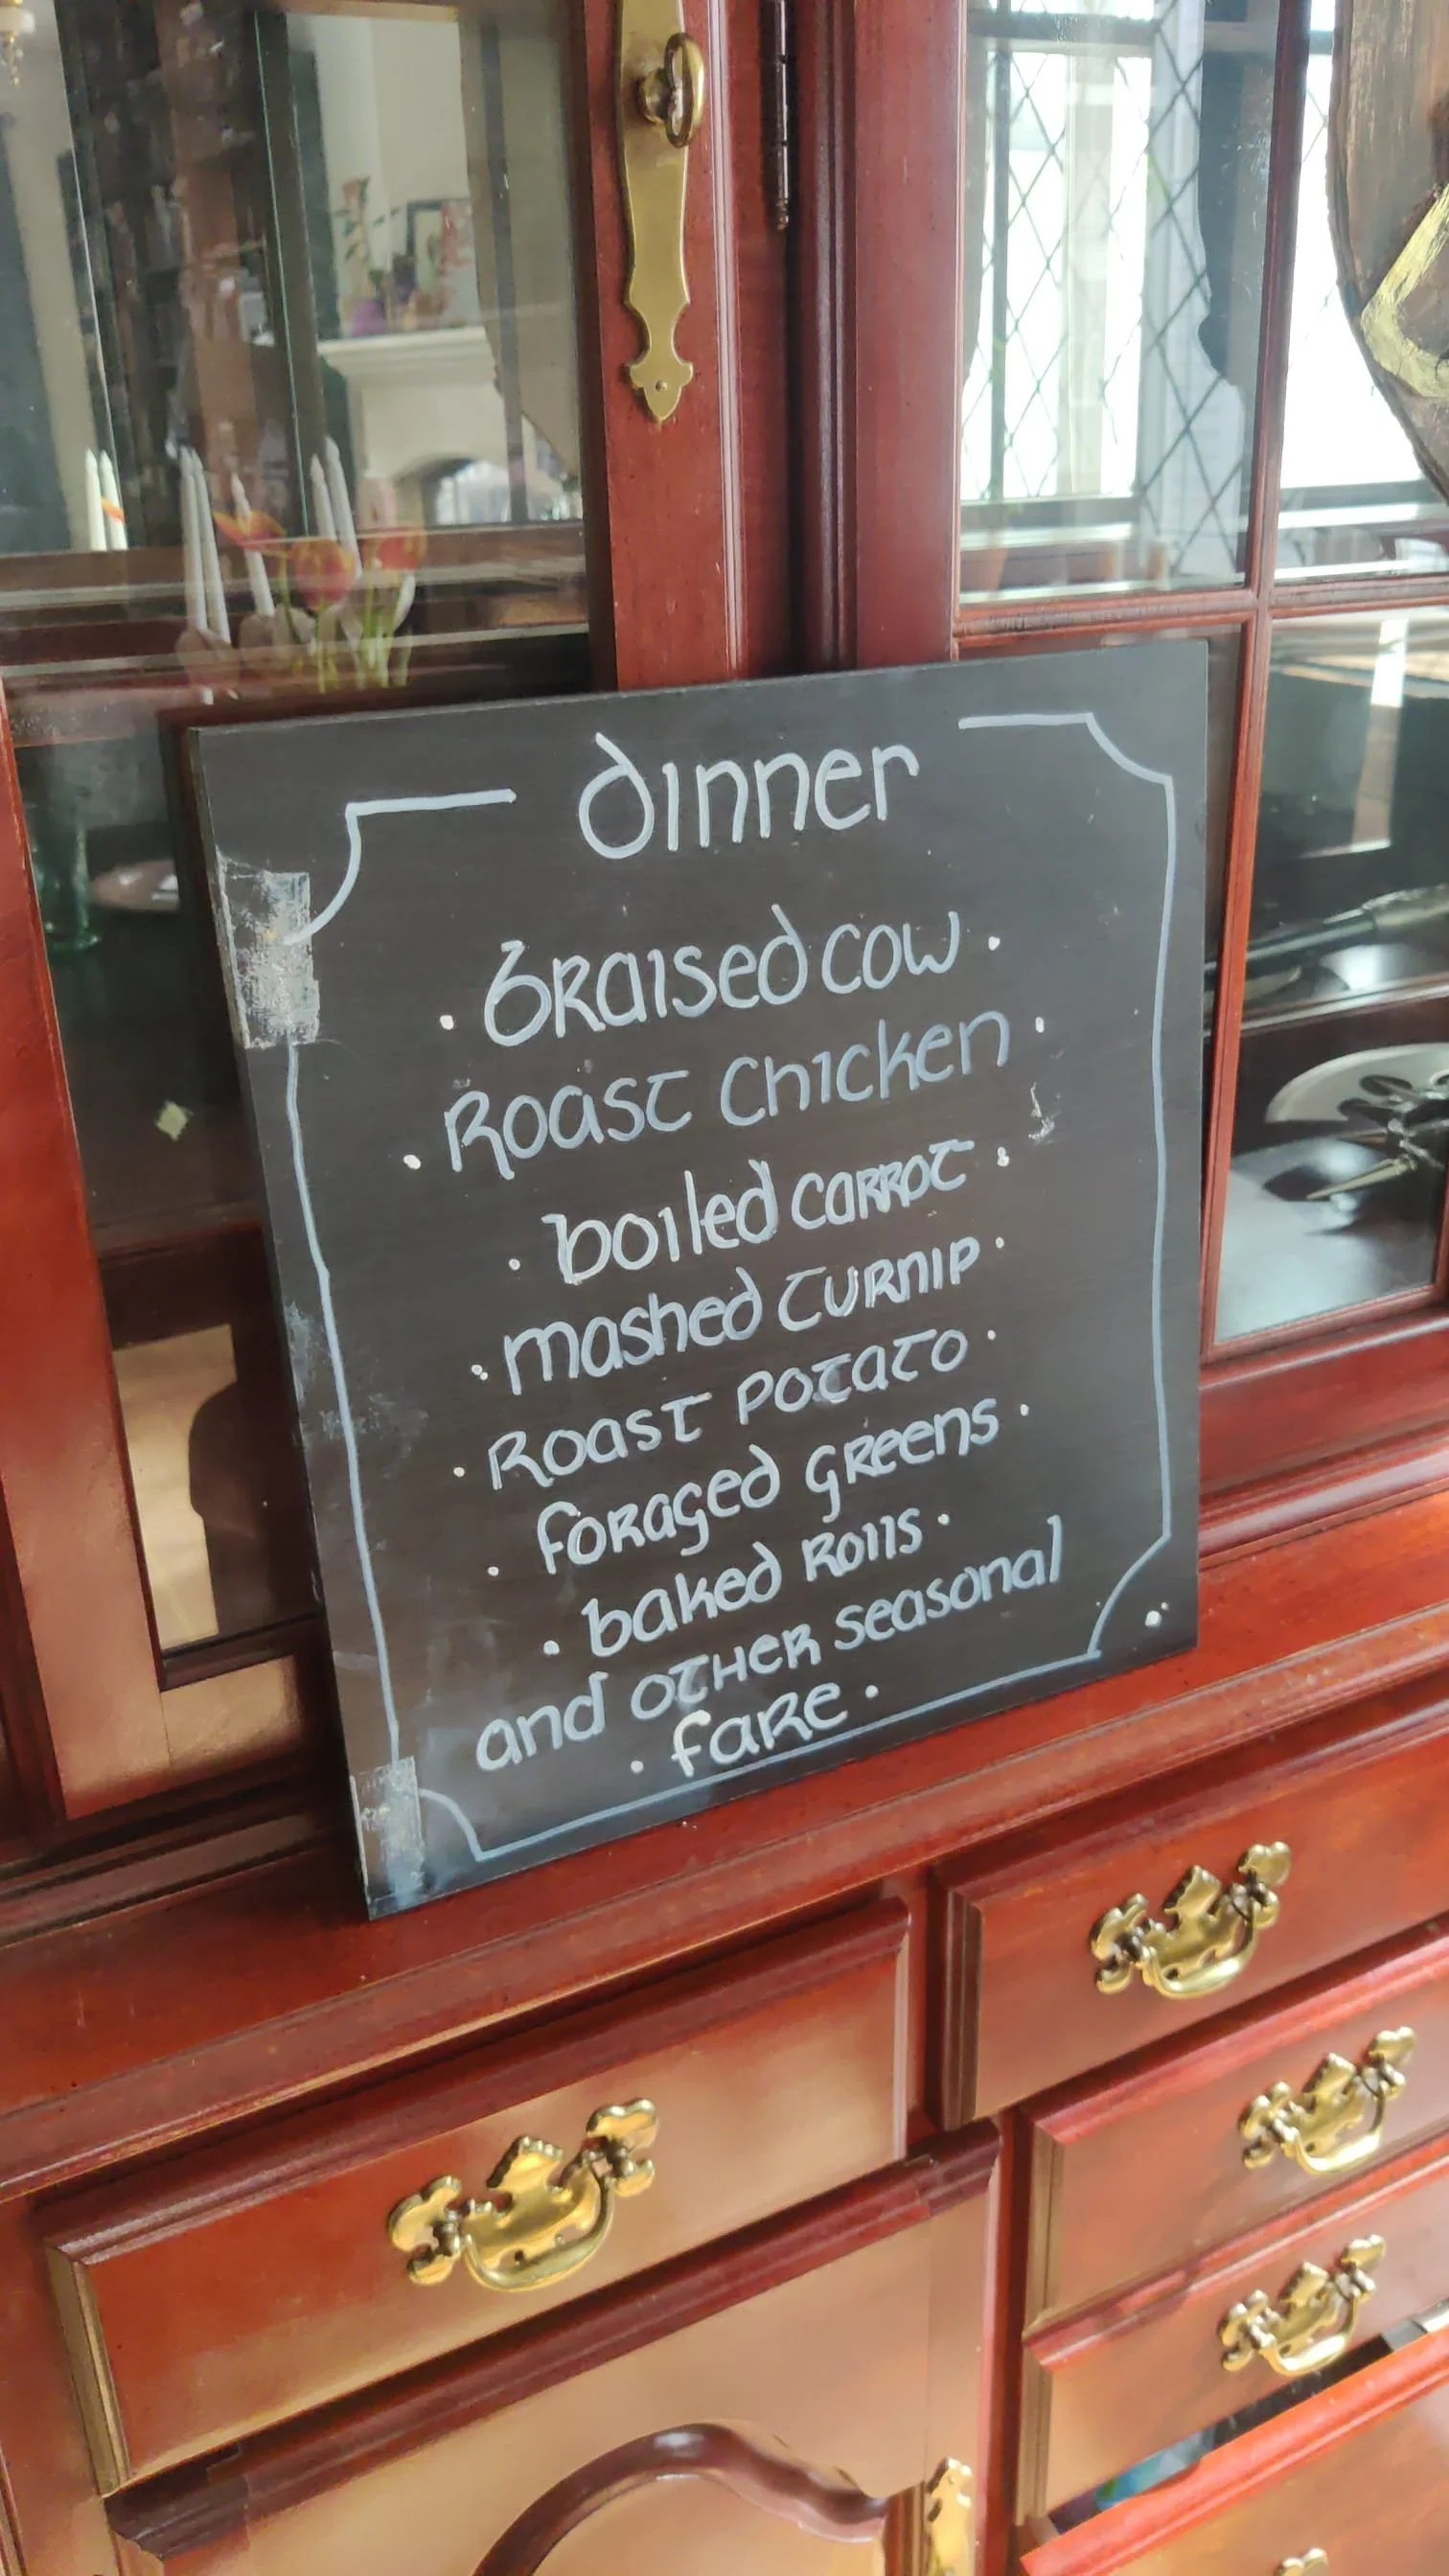 dinner
· braised cow ·
· Roast Chicken ·
· boiled carrot ·
· mashed turnip ·
· Roast Potato ·
· foraged greens ·
· baked Rolls ·
and other seasonal
· fare ·